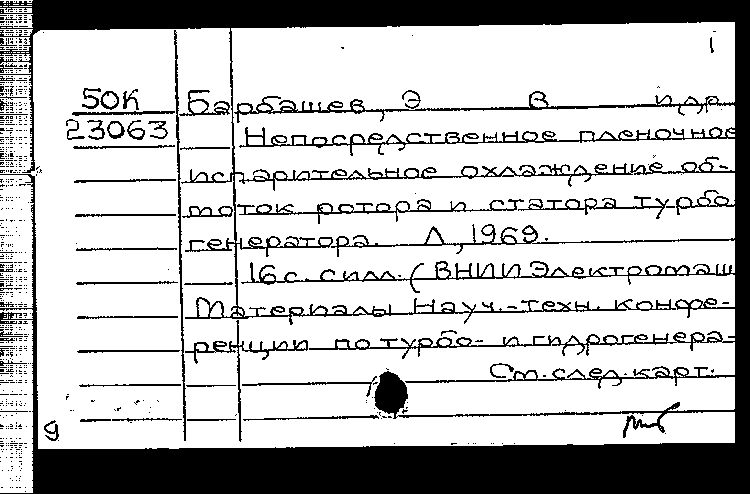 1
50К Барбашев, Э В и др
23063 Непосредственное пленочное
испарительное охлаждение об-
моток ротора и статора турбо
генератора. Л, 1969.
16 с. с илл. (ВНИИЭлектромаш
Материалы Науч.-техн. конфе-
ренции по турбо- и гидрогенера-
См. след. карт.
9